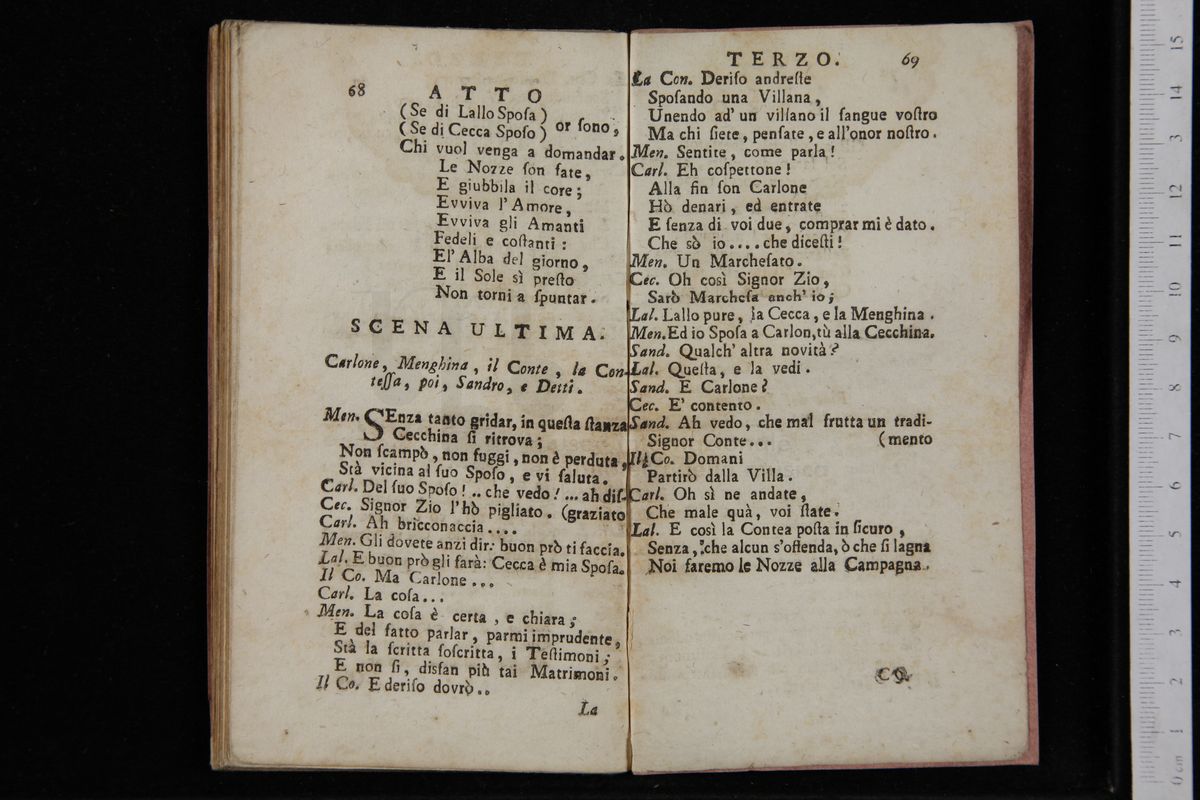 68 ATTO
(Se di Lallo Sposa)
(Se di Cecca Sposo) or sono,
Chi vuol venga a domandar.
Le Nozze son fate,
E giubbila il core;
Evviva l'Amore,
Evviva gli Amanti
Fedeli e costanti:
El' Alba del giorno,
E il Sole sì presto
Non torni a spuntar.
SCENA ULTIMA.
Carlone, Menghina, il Conte, la Con-
tessa, poi, Sandro, e Detti.
Men. SEnza tanto gridar, in questa stanza
Cecchina si ritrova;
Non scampò, non fuggì, non è perduta,
Stà vicina al suo Sposo, e vi saluta.
Carl. Del suo Sposo! .. che vedo! ... ah dis-
Cec. Signor Zio l'hò pigliato. (graziato
Carl. Ah bricconaccia....
Men. Gli dovete anzi dir: buon prò ti faccia.
Lal. E buon prò gli farà: Cecca è mia Sposa.
Il Co. Ma Carlone...
Carl. La cosa...
Men. La cosa è certa, e chiara;
E del fatto parlar, parmi imprudente,
Stà la scritta soscritta, i Testimoni;
E non si, disfan più tai Matrimoni.
Il Co. E deriso dovrò..
La
TERZO. 69
La Con. Deriso andreste
Sposando una Villana,
Unendo ad' un villano il sangue vostro
Ma chi siete, pensate, e all'onor nostro.
Men. Sentite, come parla!
Carl. Eh cospettone!
Alla fin son Carlone
Hò denari, ed entrate
E senza di voi due, comprar mi è dato.
Che sò io.... che dicesti!
Men. Un Marchesato.
Cec. Oh così Signor Zio,
Sarò Marchesa anch' io;
Lal. Lallo pure, la Cecca, e la Menghina.
Men. Ed io Sposa a Carlon, tù alla Cecchina.
Sand. Qualch' altra novità?
Lal. Questa, e la vedi.
Sand. E Carlone?
Cec. E' contento.
Sand. Ah vedo, che mal frutta un tradi-
Signor Conte... (mento
Il Co. Domani
Partirò dalla Villa.
Carl. Oh sì ne andate,
Che male quà, voi state.
Lal. E così la Contea posta in sicuro,
Senza, che alcun s'offenda, ò che si lagna
Noi faremo le Nozze alla Campagna.
CO.
0 cm 1 2 3 4 5 6 7 8 9 10 11 12 13 14 15